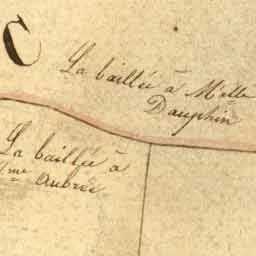 C
La baillée à Melle
Dauphin
La baillée à
Mme Aubrée